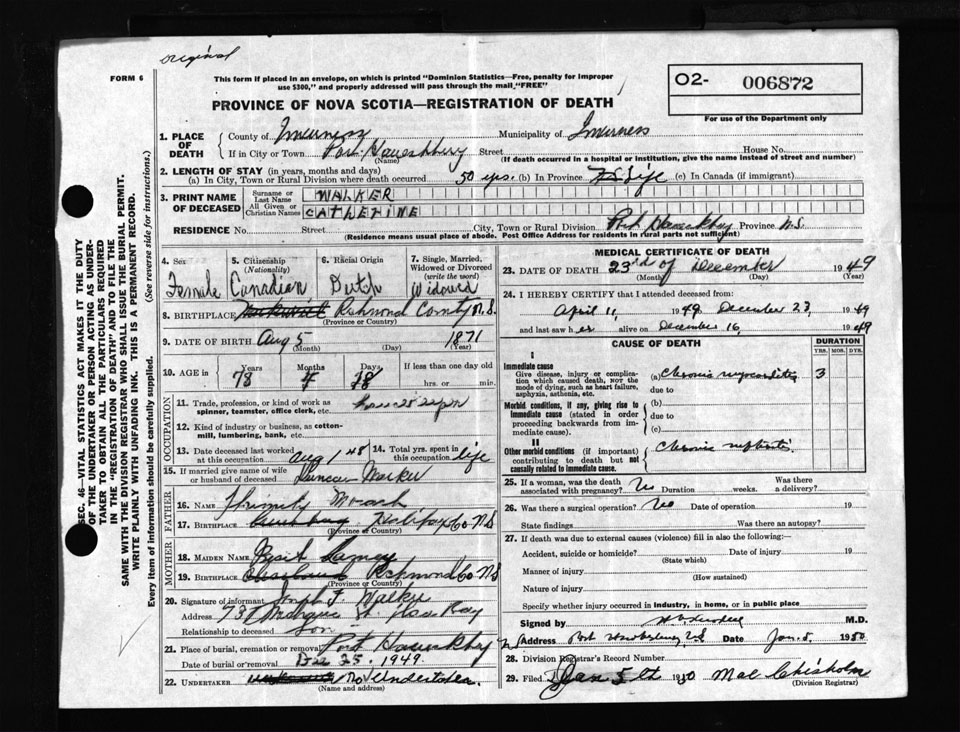 original
FORM 6
This form if placed in an envelope, on which is printed "Dominion Statistics—Free, penalty for improper
use $300," and properly addressed will pass through the mail, "FREE"
O2- 006872
For use of the Department only
PROVINCE OF NOVA SCOTIA—REGISTRATION OF DEATH
SEC. 46—VITAL STATISTICS ACT MAKES IT THE DUTY
OF THE UNDERTAKER OR PERSON ACTING AS UNDER-
TAKER TO OBTAIN ALL THE PARTICULARS REQUIRED
IN THE "REGISTRATION OF DEATH" AND TO FILE THE
SAME WITH THE DIVISION REGISTRAR WHO SHALL ISSUE THE BURIAL PERMIT.
WRITE PLAINLY WITH UNFADING INK. THIS IS A PERMANENT RECORD.
Every item of information should be carefully supplied. (See reverse side for instructions.)
1. PLACE OF DEATH
County of Inverness Municipality of Inverness
If in City or Town Port Hawkesbury Street House No.
(Name) (If death occurred in a hospital or institution, give the name instead of street and number)
2. LENGTH OF STAY (in years, months and days)
(a) In City, Town or Rural Division where death occurred 50 yrs. (b) In Province Life (c) In Canada (if immigrant)
3. PRINT NAME OF DECEASED
Surname or Last Name WALKER
All Given or Christian Names CATHERINE
RESIDENCE No. Street City, Town or Rural Division Port Hawkesbury Province N.S.
(Residence means usual place of abode. Post Office Address for residents in rural parts not sufficient)
4. Sex 5. Citizenship (Nationality) 6. Racial Origin 7. Single, Married, Widowed or Divorced (write the word)
Female Canadian Dutch Widowed
8. BIRTHPLACE Richmond County N.S.
(Province or Country)
9. DATE OF BIRTH Aug 5 1871
(Month) (Day) (Year)
10. AGE in Years Months Days If less than one day old
78 4 18 hrs. or min.
OCCUPATION
11. Trade, profession, or kind of work as
spinner, teamster, office clerk, etc.
12. Kind of industry or business, as cotton-
mill, lumbering, bank, etc.
13. Date deceased last worked
at this occupation Aug 1 48
14. Total yrs. spent in
this occupation life
15. If married give name of wife
or husband of deceased Duncan Walker
FATHER
16. Name
17. Birthplace Halifax Co N.S
(Province or Country)
MOTHER
18. Maiden Name
19. Birthplace Richmond Co N.S
(Province or Country)
20. Signature of informant Joseph F. Walker
Address
Relationship to deceased Son
21. Place of burial, cremation or removal Port Hawkesbury
Date of burial or removal Dec 25. 1949.
22. UNDERTAKER No Undertaker.
(Name and address)
MEDICAL CERTIFICATE OF DEATH
23. DATE OF DEATH 23rd of December 1949
(Month) (Day) (Year)
24. I HEREBY CERTIFY that I attended deceased from:
April 11, 1949 December 23, 1949
and last saw her alive on December 16, 1949
CAUSE OF DEATH DURATION
YRS. MOS. DYS.
I
Immediate cause
Give disease, injury or complica-
tion which caused death, NOT the
mode of dying, such as heart failure,
asphyxia, asthenia, etc.
(a) Chronic myocarditis 3
due to
Morbid conditions, if any, giving rise to
immediate cause (stated in order
proceeding backwards from im-
mediate cause).
(b)
due to
(c)
II
Other morbid conditions (if important)
contributing to death but not
causally related to immediate cause.
Chronic nephritis
25. If a woman, was the death
associated with pregnancy? No Duration weeks. Was there
a delivery?
26. Was there a surgical operation? No Date of operation 19
State findings Was there an autopsy?
27. If death was due to external causes (violence) fill in also the following:—
Accident, suicide or homicide? Date of injury 19
(State which)
Manner of injury
(How sustained)
Nature of injury
Specify whether injury occurred in industry, in home, or in public place
Signed by M.D.
Address Port Hawkesbury N.S Date Jan. 5. 1950
28. Division Registrar's Record Number
29. Filed Jan 5th 1950 Mac Chisholm
(Division Registrar)